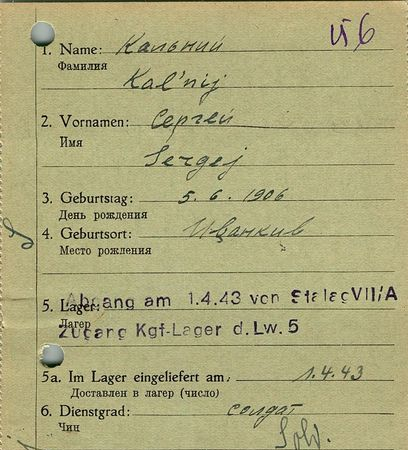 й6
1. Name: Кальний
Фамилия
Kal'nij
2. Vornamen: Сергей
Имя
Sergej
3. Geburtstag: 5. 6. 1906
День рождения
4. Geburtsort: Иванкив
Место рождения
5. Lager: Abgang am 1.4.43 von Stalag VII/A
Лагер
Zugang Kgf-Lager d. Lw. 5
5a. Im Lager eingeliefert am: 1.4.43
Доставлен в лагер (число)
6. Dienstgrad: солдат
Чин
Sold.